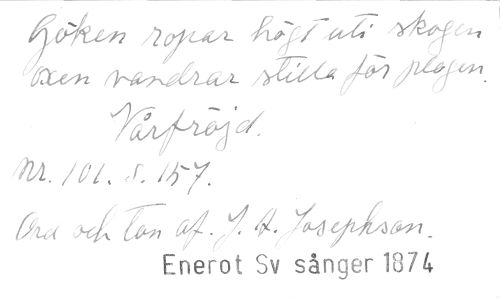 Göken ropar högt uti skogen
oxen vandrar stilla för plogen.
Vårfröjd.
Nr. 101. s. 157.
Ord och Ton af. J. A. Josephson.
Enerot Sv sånger 1874